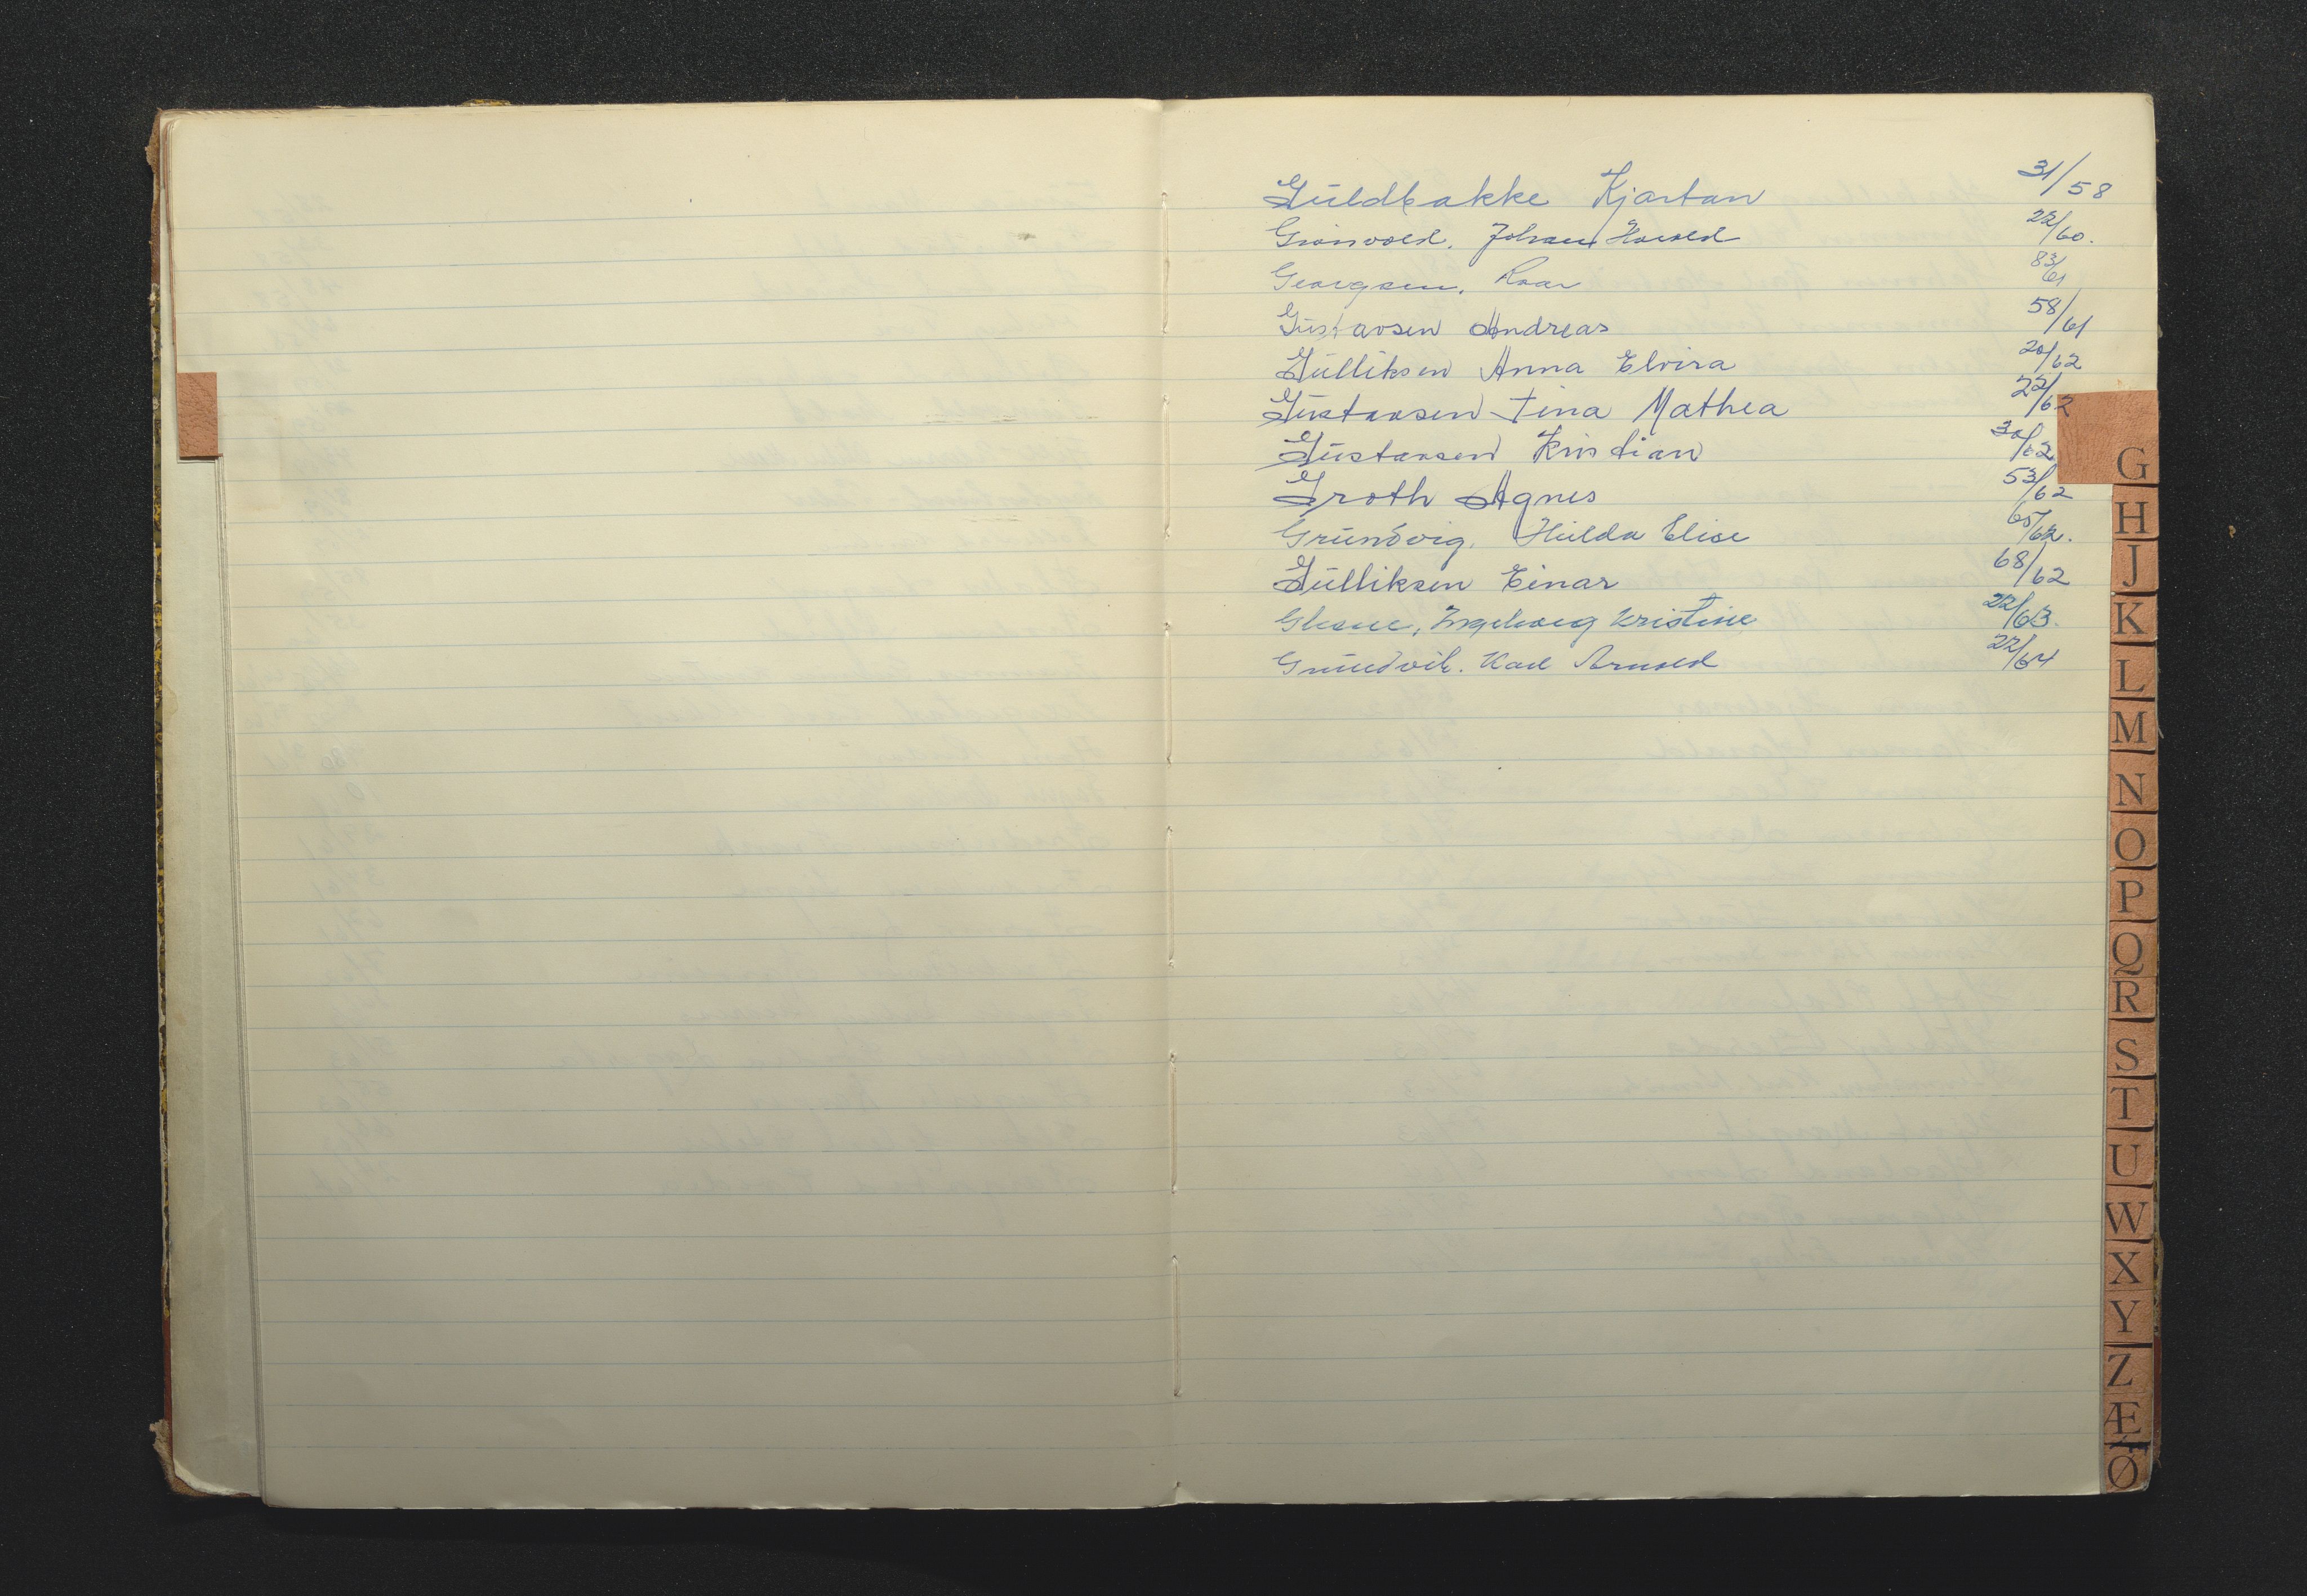 Guldbakke Kjartan 31/58
Grönvold. Johan Harald 22/60.
Georgsen. Roar 83/61
Gustavsen Andreas 58/61
Gulliksen Anna Elvira 20/62
Gustavsen Tina Mathea 22/62
Gustavsen Kristian 30/62
Groth Agnes 53/62
Grundvig. Hulda Elise 65/62.
Gulliksen Einar 68/62
Ingeborg Kristine 22/63.
Grundvik. Karl Arnold 22/64
G
H
J
K
L
M
N
O
P
Q
R
S
T
U
W
X
Y
Z
Æ
Ø